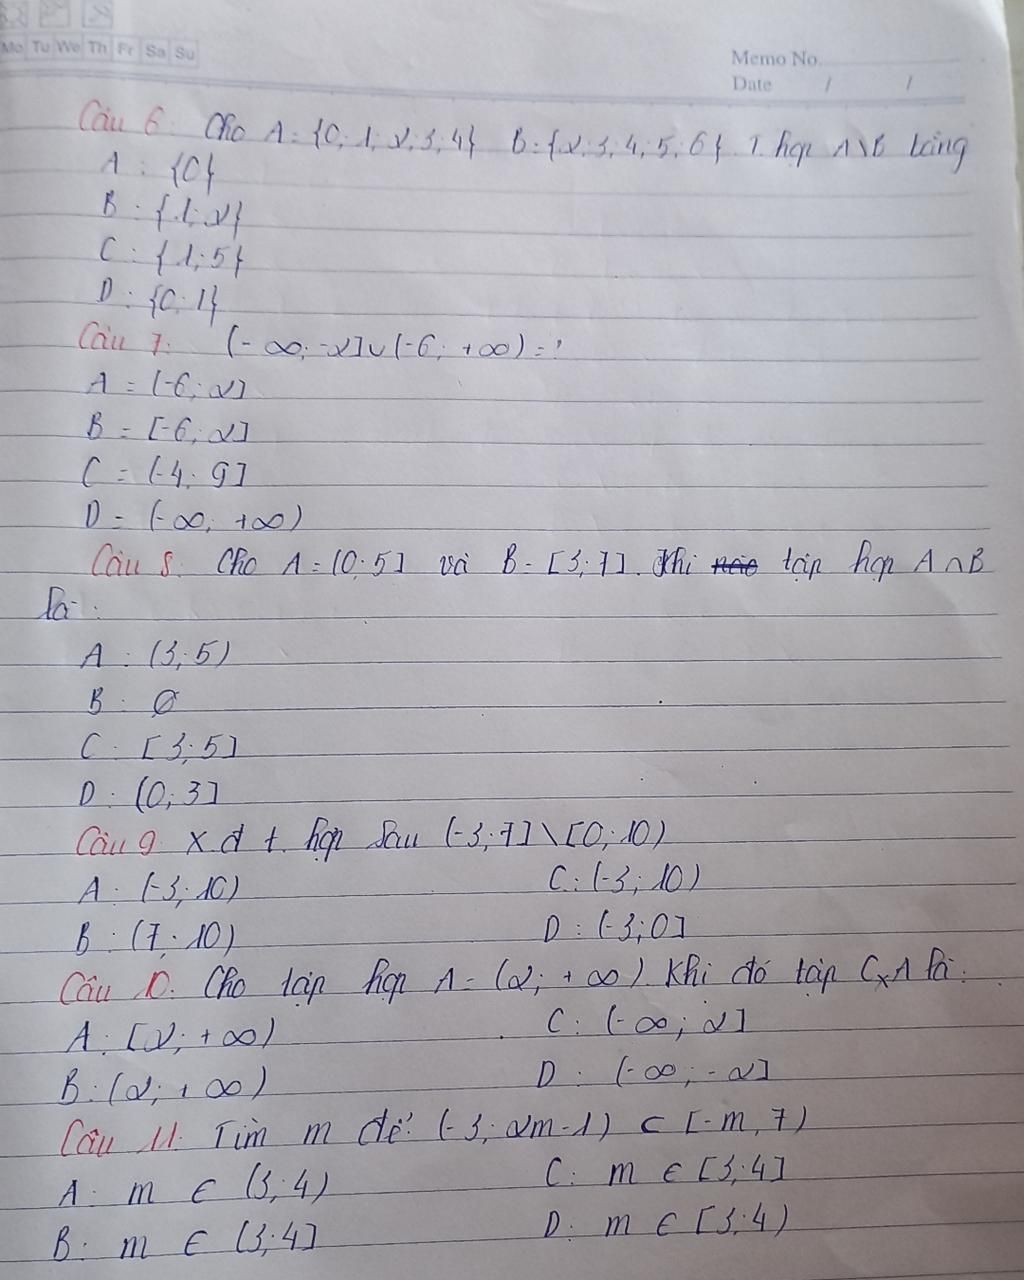 Mo Tu We Th Fr Sa Su
Memo No.
Date / /
Câu 6: Cho A = {0; 1; 2; 3; 4} B = {2; 3; 4; 5; 6}. T. hợp A\B bằng
A : {0}
B : {1; 2}
C : {1; 5}
D : {0; 1}
Câu 7: (-∞; -2] ∪ (-6; +∞) = ?
A = (-6; 2]
B = [-6; 2]
C = (-4; 9]
D = (-∞; +∞)
Câu 8: Cho A = (0; 5] và B = [3; 7]. Khi tập hợp A ∩ B
là :
A : (3; 5)
B : ∅
C : [3; 5]
D : (0; 3]
Câu 9 X đ t. hợp sau (-3; 7] \ [0; 10)
A : (-3; 10) C : (-3; 10)
B : (7; 10) D : (-3; 0]
Câu 10: Cho tập hợp A = (2; +∞). Khi đó tập CₓA là :
A : [2; +∞) C : (-∞; 2]
B : (2; +∞) D : (-∞; -2]
Câu 11: Tìm m để: (-3; 2m-1) ⊂ [-m, 7)
A : m ∈ (3; 4) C : m ∈ [3; 4]
B : m ∈ (3; 4] D : m ∈ [3; 4)